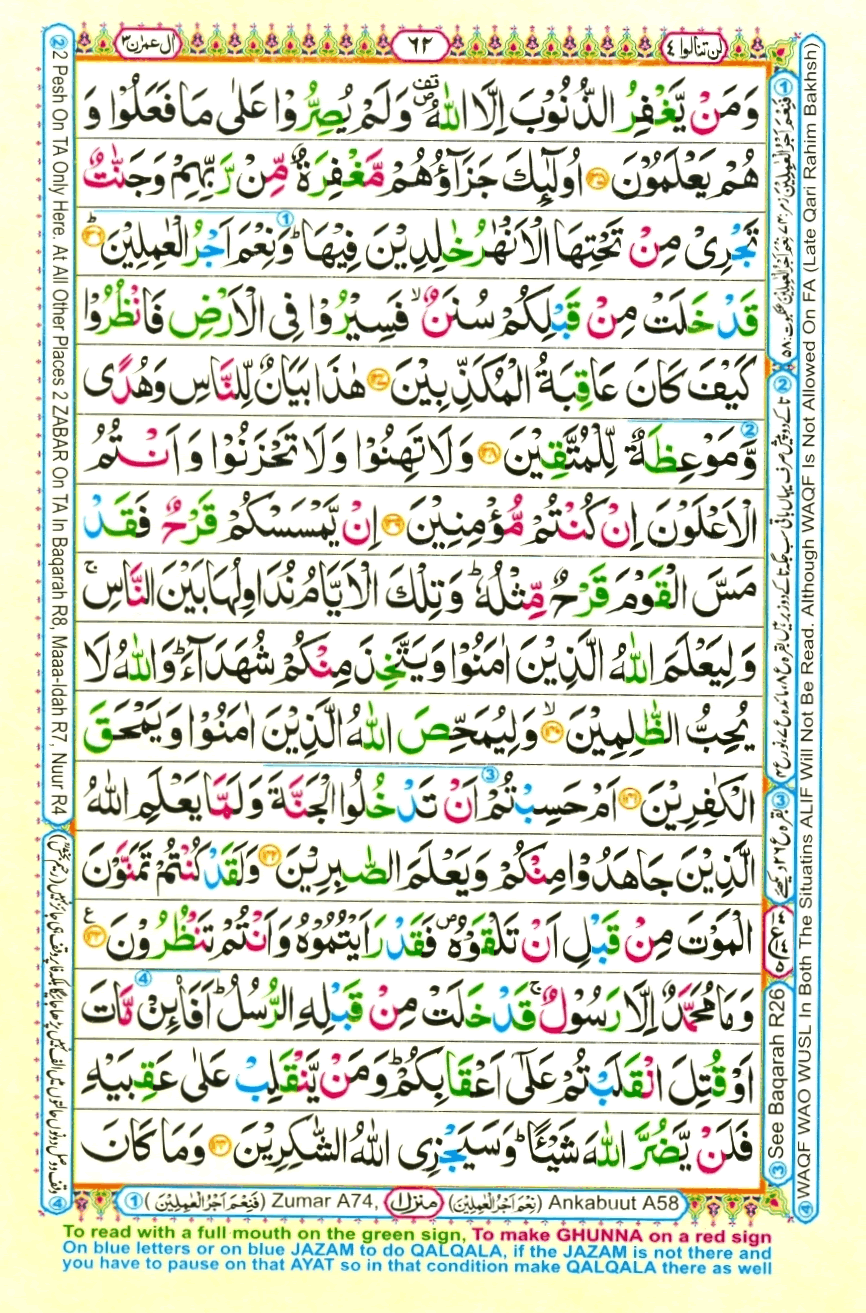 لن تنالوا ٤
٦٢
اٰل عمرٰن ٣
وَمَنْ يَّغْفِرُ الذُّنُوْبَ اِلَّا اللّٰهُ ۪ۖ وَلَمْ يُصِرُّوْا عَلٰى مَا فَعَلُوْا وَ
هُمْ يَعْلَمُوْنَ ۝۱۳۵ اُولٰٓئِكَ جَزَآؤُهُمْ مَّغْفِرَةٌ مِّنْ رَّبِّهِمْ وَجَنّٰتٌ
تَجْرِىْ مِنْ تَحْتِهَا الْاَنْهٰرُ خٰلِدِيْنَ فِيْهَا ؕ وَنِعْمَ اَجْرُ الْعٰمِلِيْنَ ۝۱۳۶ؕ
قَدْ خَلَتْ مِنْ قَبْلِكُمْ سُنَنٌ ۙ فَسِيْرُوْا فِى الْاَرْضِ فَانْظُرُوْا
كَيْفَ كَانَ عَاقِبَةُ الْمُكَذِّبِيْنَ ۝۱۳۷ هٰذَا بَيَانٌ لِّلنَّاسِ وَهُدًى
وَّمَوْعِظَةٌ لِّلْمُتَّقِيْنَ ۝۱۳۸ وَلَا تَهِنُوْا وَلَا تَحْزَنُوْا وَاَنْتُمُ
الْاَعْلَوْنَ اِنْ كُنْتُمْ مُّؤْمِنِيْنَ ۝۱۳۹ اِنْ يَّمْسَسْكُمْ قَرْحٌ فَقَدْ
مَسَّ الْقَوْمَ قَرْحٌ مِّثْلُهٗ ؕ وَتِلْكَ الْاَيَّامُ نُدَاوِلُهَا بَيْنَ النَّاسِ ۚ
وَلِيَعْلَمَ اللّٰهُ الَّذِيْنَ اٰمَنُوْا وَيَتَّخِذَ مِنْكُمْ شُهَدَآءَ ؕ وَاللّٰهُ لَا
يُحِبُّ الظّٰلِمِيْنَ ۝۱۴۰ۙ وَلِيُمَحِّصَ اللّٰهُ الَّذِيْنَ اٰمَنُوْا وَيَمْحَقَ
الْكٰفِرِيْنَ ۝۱۴۱ اَمْ حَسِبْتُمْ اَنْ تَدْخُلُوا الْجَنَّةَ وَلَمَّا يَعْلَمِ اللّٰهُ
الَّذِيْنَ جَاهَدُوْا مِنْكُمْ وَيَعْلَمَ الصّٰبِرِيْنَ ۝۱۴۲ وَلَقَدْ كُنْتُمْ تَمَنَّوْنَ
الْمَوْتَ مِنْ قَبْلِ اَنْ تَلْقَوْهُ ۪ فَقَدْ رَاَيْتُمُوْهُ وَاَنْتُمْ تَنْظُرُوْنَ ۝۱۴۳ع
وَمَا مُحَمَّدٌ اِلَّا رَسُوْلٌ ۚ قَدْ خَلَتْ مِنْ قَبْلِهِ الرُّسُلُ ؕ اَفَا۟ئِنْ مَّاتَ
اَوْ قُتِلَ انْقَلَبْتُمْ عَلٰٓى اَعْقَابِكُمْ ؕ وَمَنْ يَّنْقَلِبْ عَلٰى عَقِبَيْهِ
فَلَنْ يَّضُرَّ اللّٰهَ شَيْـًٔا ؕ وَسَيَجْزِى اللّٰهُ الشّٰكِرِيْنَ ۝۱۴۴ وَمَا كَانَ
② 2 Pesh On TA Only Here. At All Other Places 2 ZABAR On TA In Baqarah R8, Maaa-Idah R7, Nuur R4
③ See Baqarah R26
④ WAQF WAO WUSL In Both The Situatins ALIF Will Not Be Read. Although WAQF Is Not Allowed On FA (Late Qari Rahim Bakhsh)
① (فَنِعْمَ اَجْرُ الْعٰمِلِيْنَ) Zumar A74, منزل ۱ (نِعْمَ اَجْرُ الْعٰمِلِيْنَ) Ankabuut A58
To read with a full mouth on the green sign, To make GHUNNA on a red sign
On blue letters or on blue JAZAM to do QALQALA, if the JAZAM is not there and
you have to pause on that AYAT so in that condition make QALQALA there as well